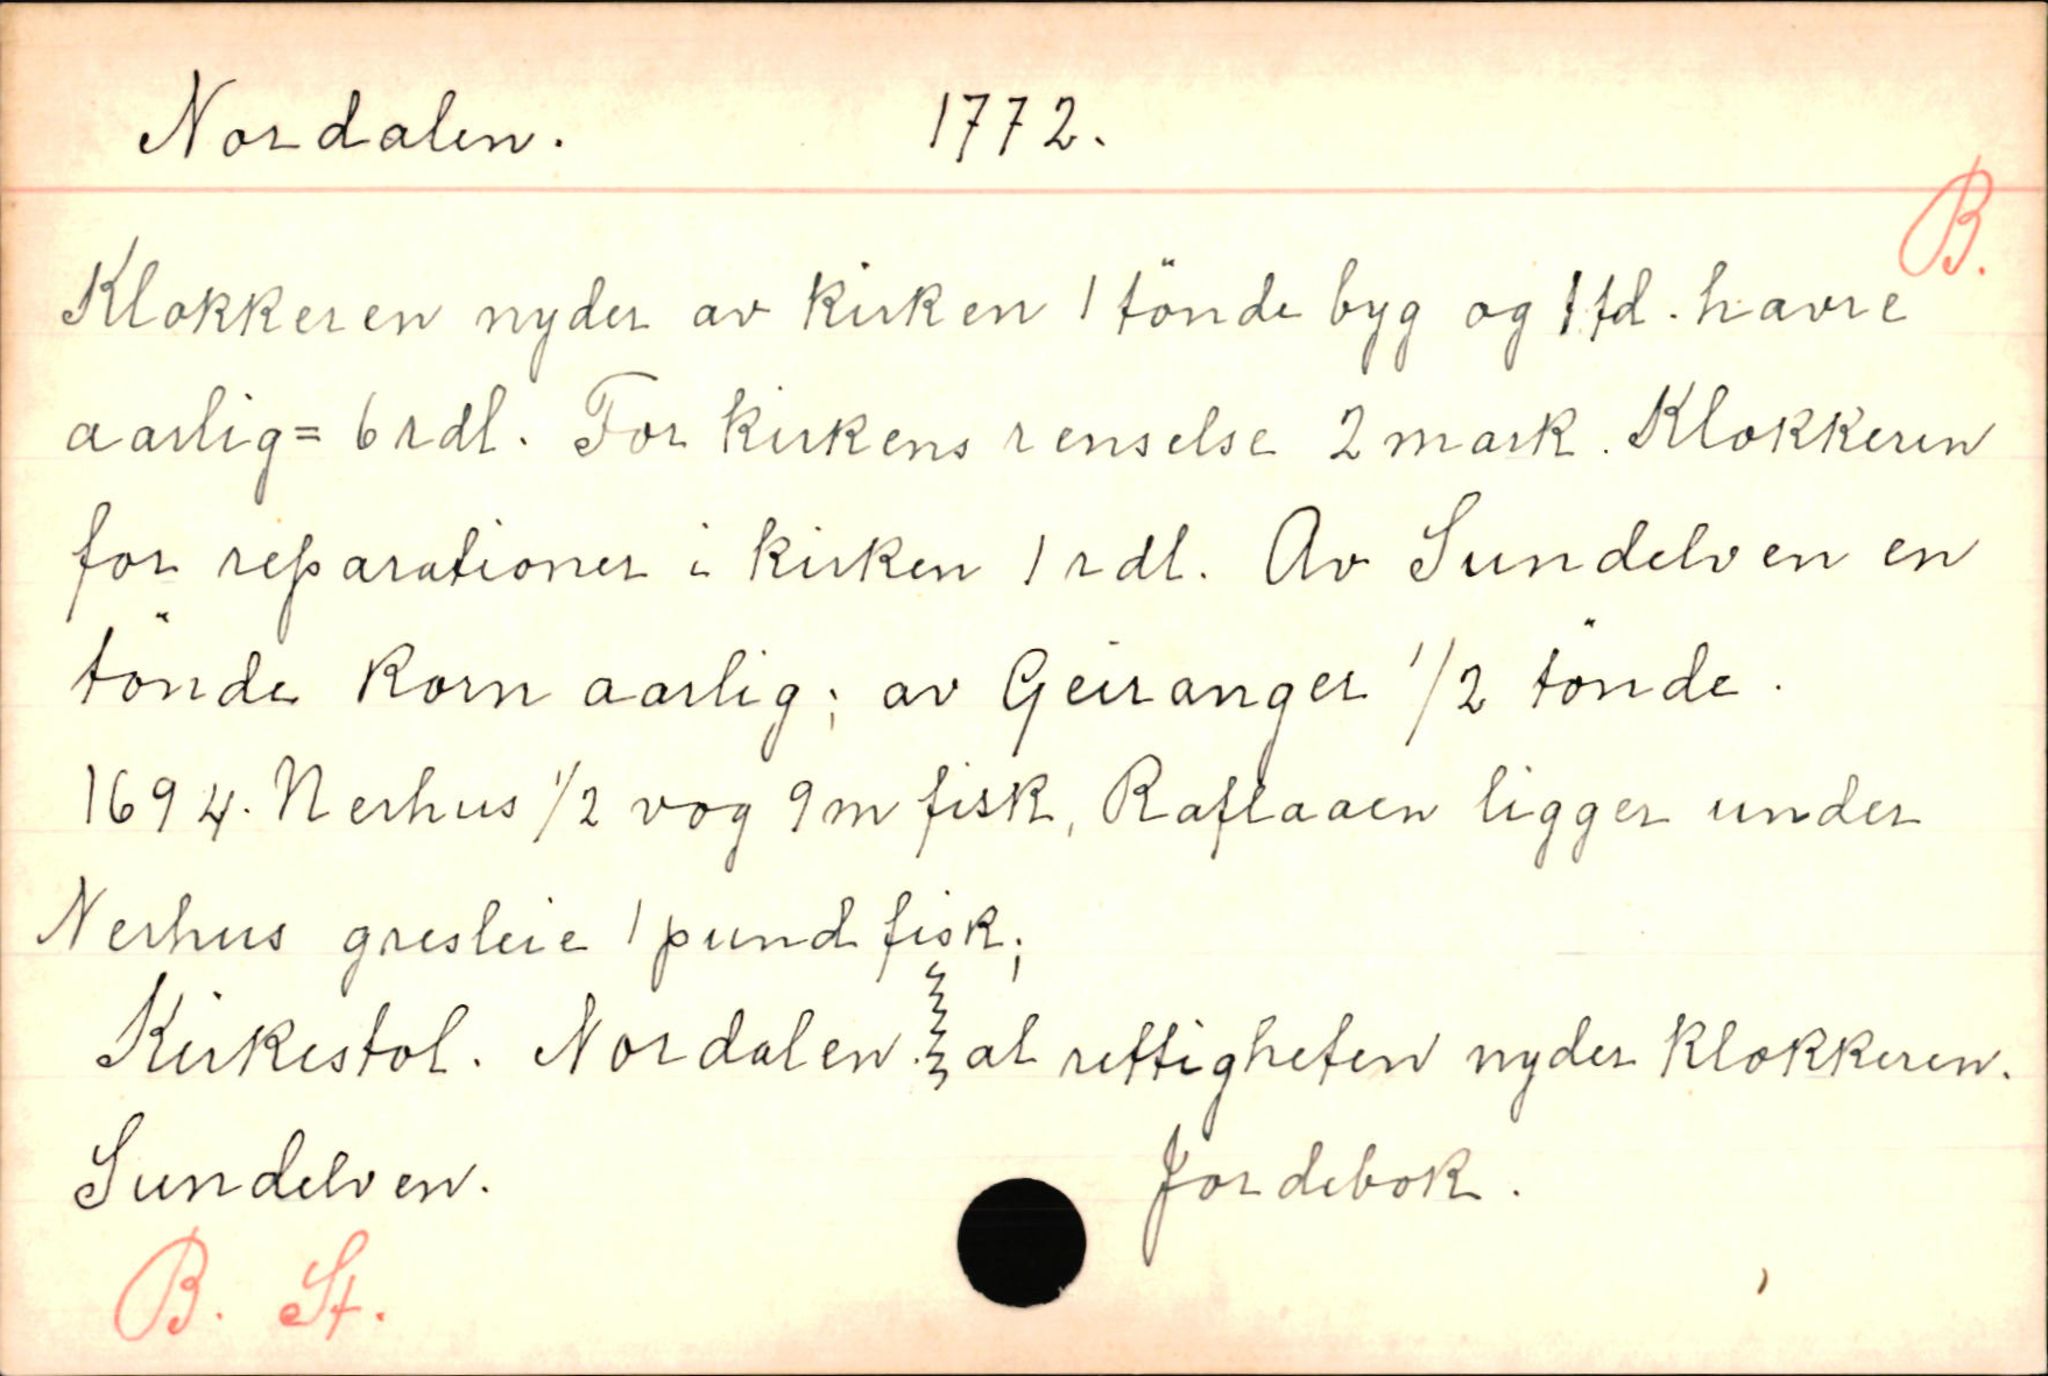 Nordalen. 1772.
B.
Klokkeren nyder av kirken 1 tönde byg og 1 td. havre
aarlig = 6 rdl. For kirkens renselse 2 mark. Klokkeren
for reparationer i kirken 1 rdl. Av Sundelven en
tönde korn aarlig; av Geiranger 1/2 tönde.
1694. Nerhus 1/2 vog 9 m fisk, Raflaaen ligger under
Nerhus gresleie 1 pund fisk;
Kirkestol. Nordalen. al rettigheten nyder klokkeren.
Sundelven. Jordebok.
B. St.